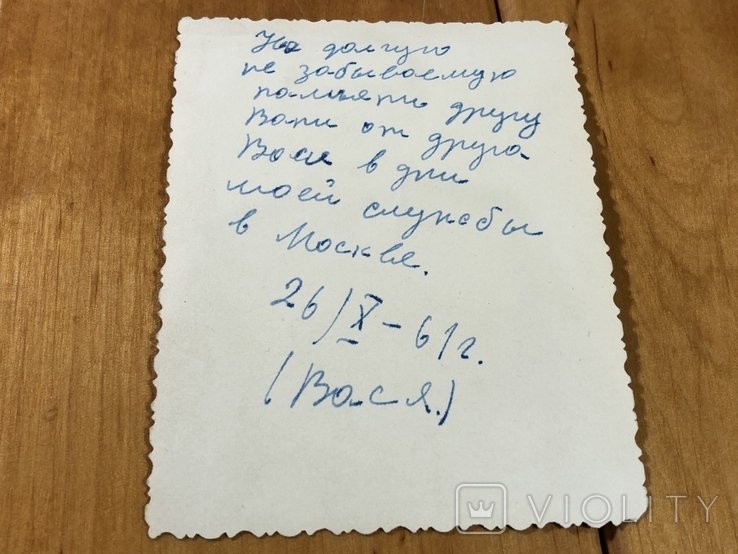 На долгую
не забываемую
памяти другу
Вани от друга
Васи в дни
моей службы
в Москвя.
26/X-61г.
(Вася.)
VIOLITY